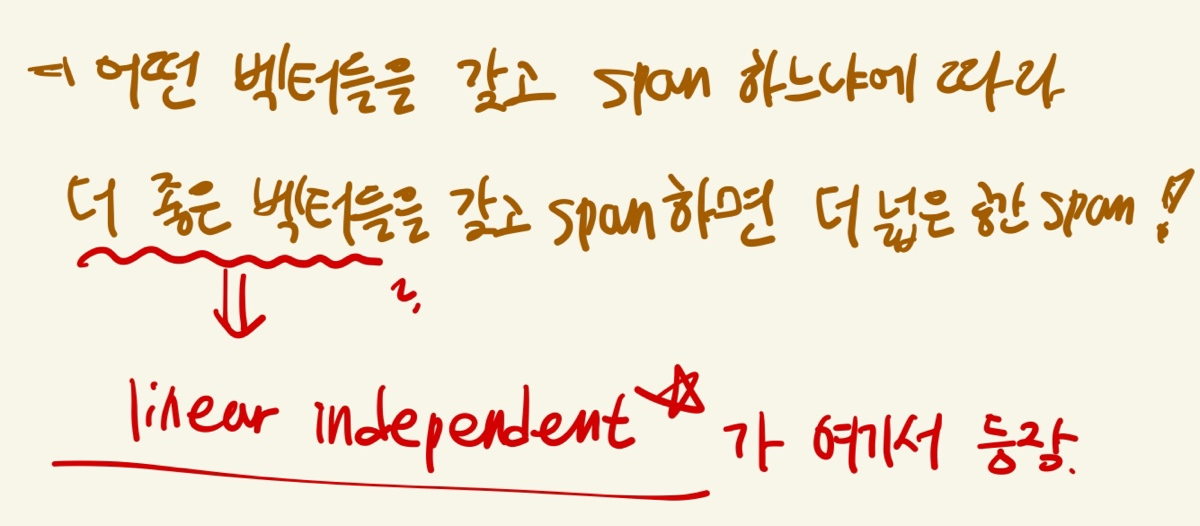 → 어떤 벡터들을 갖고 span 하느냐에 따라
더 좋은 벡터들을 갖고 span하면 더 넓은 span!
?
linear independent☆ 가 여기서 등장.